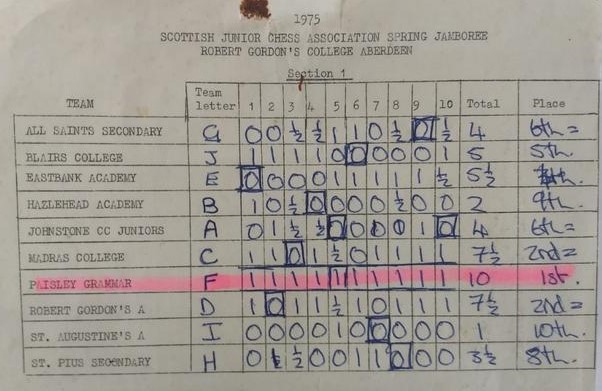 1975
SCOTTISH JUNIOR CHESS ASSOCIATION SPRING JAMBOREE
ROBERT GORDON'S COLLEGE ABERDEEN
Section 1
TEAM Team letter 1 2 3 4 5 6 7 8 9 10 Total Place
ALL SAINTS SECONDARY G 0 0 ½ ½ 1 1 0 ½ 0 ½ 4 6th=
BLAIRS COLLEGE J 1 1 1 1 0 0 0 0 0 1 5 5th.
EASTBANK ACADEMY E 0 0 0 0 1 1 1 1 1 ½ 5½ 4th.
HAZLEHEAD ACADEMY B 1 0 ½ 0 0 0 0 ½ 0 0 2 9th.
JOHNSTONE CC JUNIORS A 0 1 ½ ½ 0 0 0 1 0 4 6th=
MADRAS COLLEGE C 1 1 0 1 ½ 0 1 1 1 1 7½ 2nd=
PAISLEY GRAMMAR F 1 1 1 1 1 1 1 1 1 1 10 1st.
ROBERT GORDON'S A D 1 0 1 1 ½ 1 0 1 1 1 7½ 2nd=
ST. AUGUSTINE'S A I 0 0 0 0 1 0 0 0 0 0 1 10th.
ST. PIUS SECONDARY H 0 ½ ½ 0 0 1 1 0 0 0 3½ 8th.